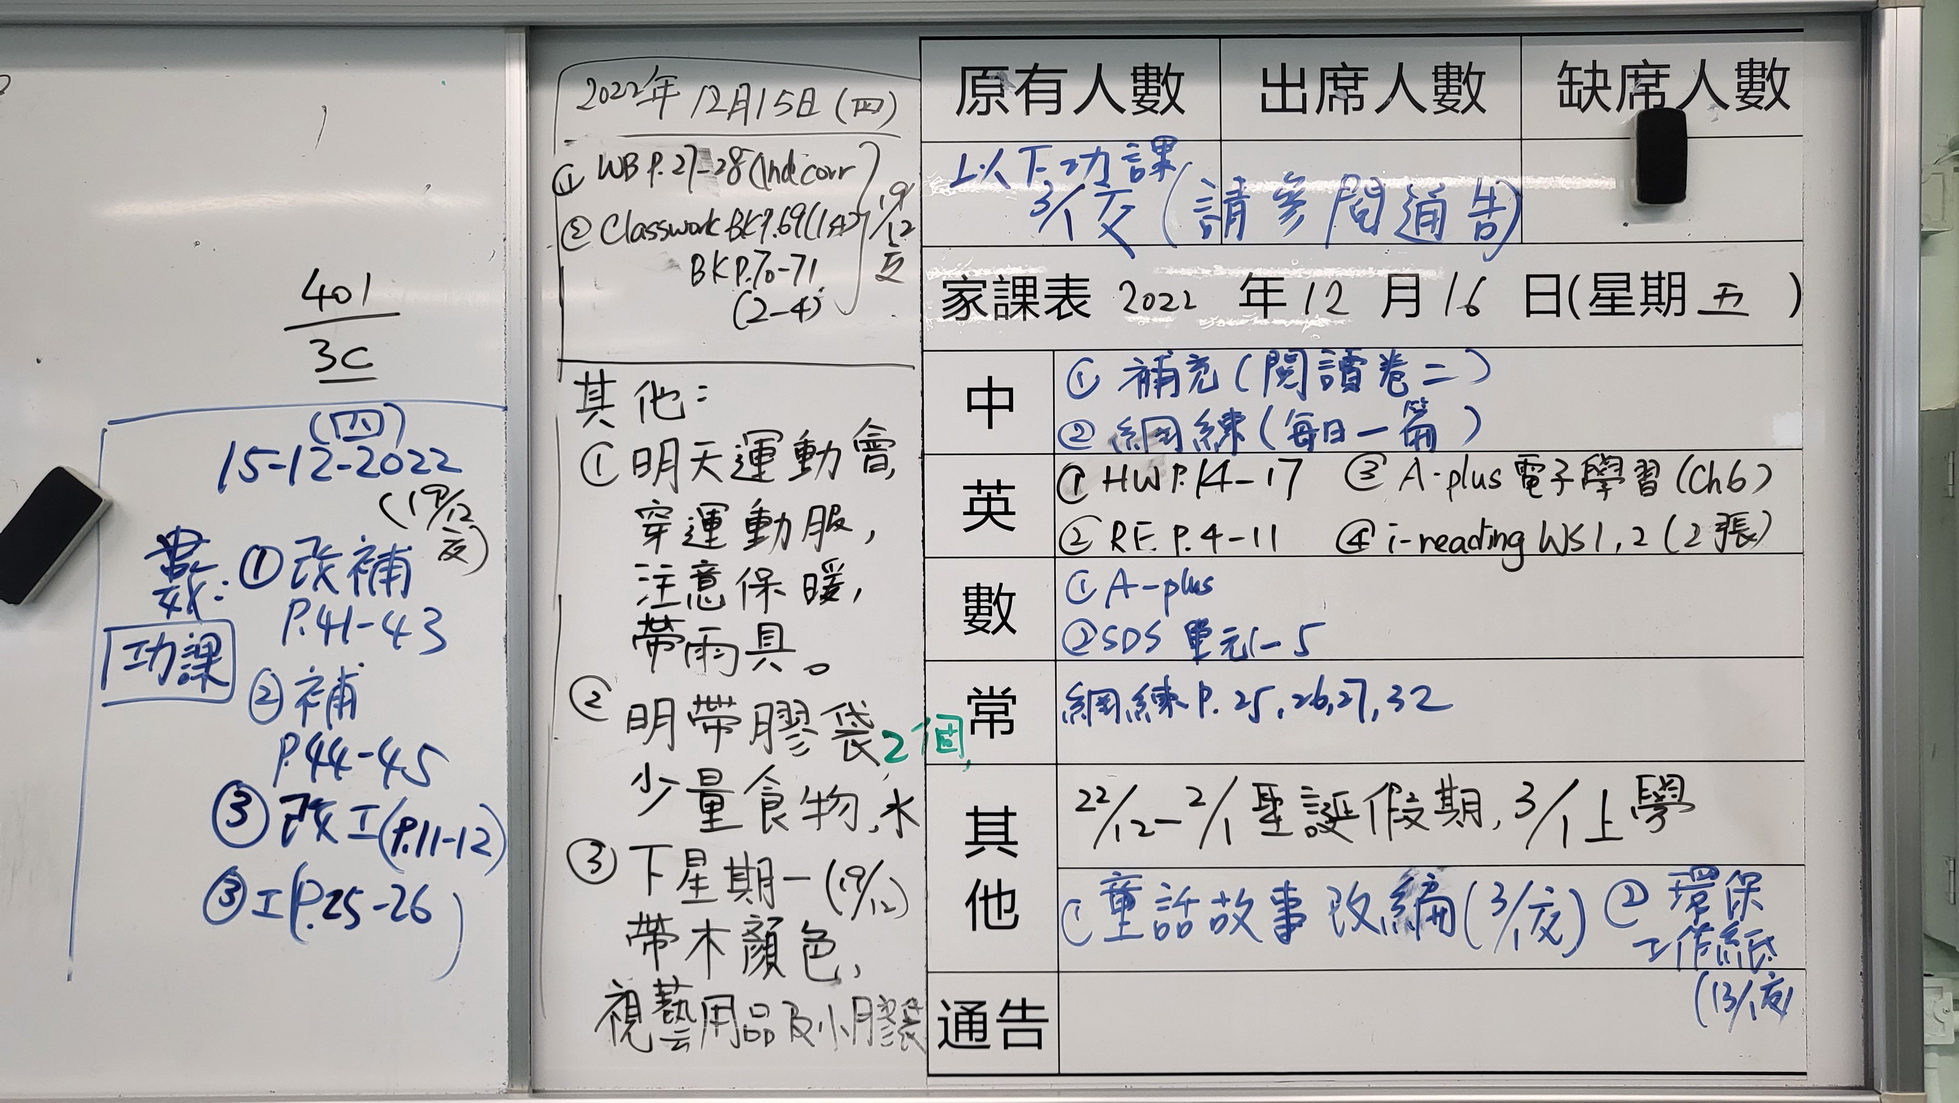 401
3C
(四)
15-12-2022
(19/12
交)
數:
功課
①改補
P.41-43
②補
P.44-45
③改工(P.11-12)
③工(P.25-26)
2022年12月15日(四)
① WB P.27-28 (Ind corr
② Classwork BK P.69(1A)
BK P.70-71
(2-4)
19/12
交
其他:
①明天運動會,
穿運動服,
注意保暖,
帶雨具。
②明帶膠袋2個,
少量食物,水
③下星期一(19/12)
帶木顏色,
視藝用品及小膠袋
原有人數 出席人數 缺席人數
以下功課
3/1交(請參閱通告)
家課表 2022 年 12 月 16 日(星期 五 )
中
① 補充(閱讀卷二)
② 網練(每日一篇)
英
① HW P.14-17 ③ A-plus 電子學習 (Ch6)
② RE P.4-11 ④ i-reading WS 1, 2 (2張)
數
① A-plus
② SDS 單元1-5
常
網練 P. 25,26,27,32
其他
22/12-2/1 聖誕假期, 3/1 上學
① 童話故事改編(3/1交) ② 環保
工作紙
(13/1交)
通告